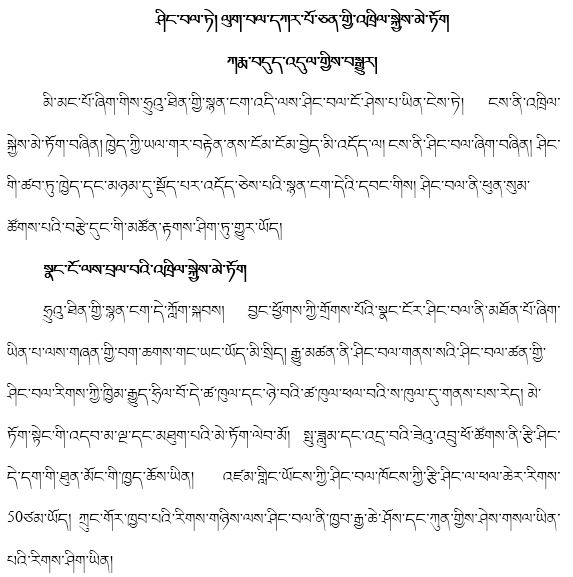 ཤིང་བལ་ཏེ། ལུག་བལ་དཀར་པོ་ཅན་གྱི་འཁྲིལ་སྐྱེས་མེ་ཏོག
ཀརྨ་བདུད་འདུལ་གྱིས་བསྒྱུར།
མི་མང་པོ་ཞིག་གིས་ཧྲུའུ་ཐིན་གྱི་སྙན་ངག་འདི་ལས་ཤིང་བལ་ངོ་ཤེས་པ་ཡིན་ངེས་ཏེ། ངས་ནི་འཁྲིལ་
སྐྱེས་མེ་ཏོག་བཞིན། ཁྱེད་ཀྱི་ཡལ་གར་བརྟེན་ནས་ངོམ་ངོམ་བྱེད་མི་འདོད་ལ། ངས་ནི་ཤིང་བལ་ཞིག་བཞིན། ཤིང་
གི་ཚབ་ཏུ་ཁྱེད་དང་མཉམ་དུ་སྡོད་པར་འདོད་ཅེས་པའི་སྙན་ངག་དེའི་དབང་གིས། ཤིང་བལ་ནི་ཕུན་སུམ་
ཚོགས་པའི་བརྩེ་དུང་གི་མཚོན་རྟགས་ཤིག་ཏུ་གྱུར་ཡོད།
སྣང་ངོ་ལས་བྲལ་བའི་འཁྲིལ་སྐྱེས་མེ་ཏོག
ཧྲུའུ་ཐིན་གྱི་སྙན་ངག་དེ་ཀློག་སྐབས། བྱང་ཕྱོགས་ཀྱི་གྲོགས་པོའི་སྣང་ངོར་ཤིང་བལ་ནི་མཐོན་པོ་ཞིག་
ཡིན་པ་ལས་གཞན་གྱི་བག་ཆགས་གང་ཡང་ཡོད་མི་སྲིད། རྒྱུ་མཚན་ནི་ཤིང་བལ་གནས་སའི་ཤིང་བལ་ཚན་གྱི་
ཤིང་བལ་རིགས་ཀྱི་ཁྱིམ་རྒྱུད་ཧྲིལ་བོ་དེ་ཚ་ཁུལ་དང་ཉེ་བའི་ཚ་ཁུལ་ཕལ་བའི་ས་ཁུལ་དུ་གནས་པས་རེད། མེ་
ཏོག་སྟེང་གི་འདབ་མ་ལྔ་དང་མཐུག་པའི་མེ་ཏོག་ལེབ་མོ། སྤུ་ཟླུམ་དང་འདྲ་བའི་ཟེའུ་འབྲུ་ཕོ་ཚོགས་ནི་རྩི་ཤིང་
དེ་དག་གི་ཐུན་མོང་གི་ཁྱད་ཆོས་ཡིན། འཛམ་གླིང་ཡོངས་ཀྱི་ཤིང་བལ་ཁོངས་ཀྱི་རྩི་ཤིང་ལ་ཕལ་ཆེར་རིགས་
50ཙམ་ཡོད། ཀྲུང་གོར་ཁྱབ་པའི་རིགས་གཉིས་ལས་ཤིང་བལ་ནི་ཁྱབ་རྒྱ་ཆེ་ཤོས་དང་ཀུན་གྱིས་ཤེས་གསལ་ཡིན་
པའི་རིགས་ཤིག་ཡིན།